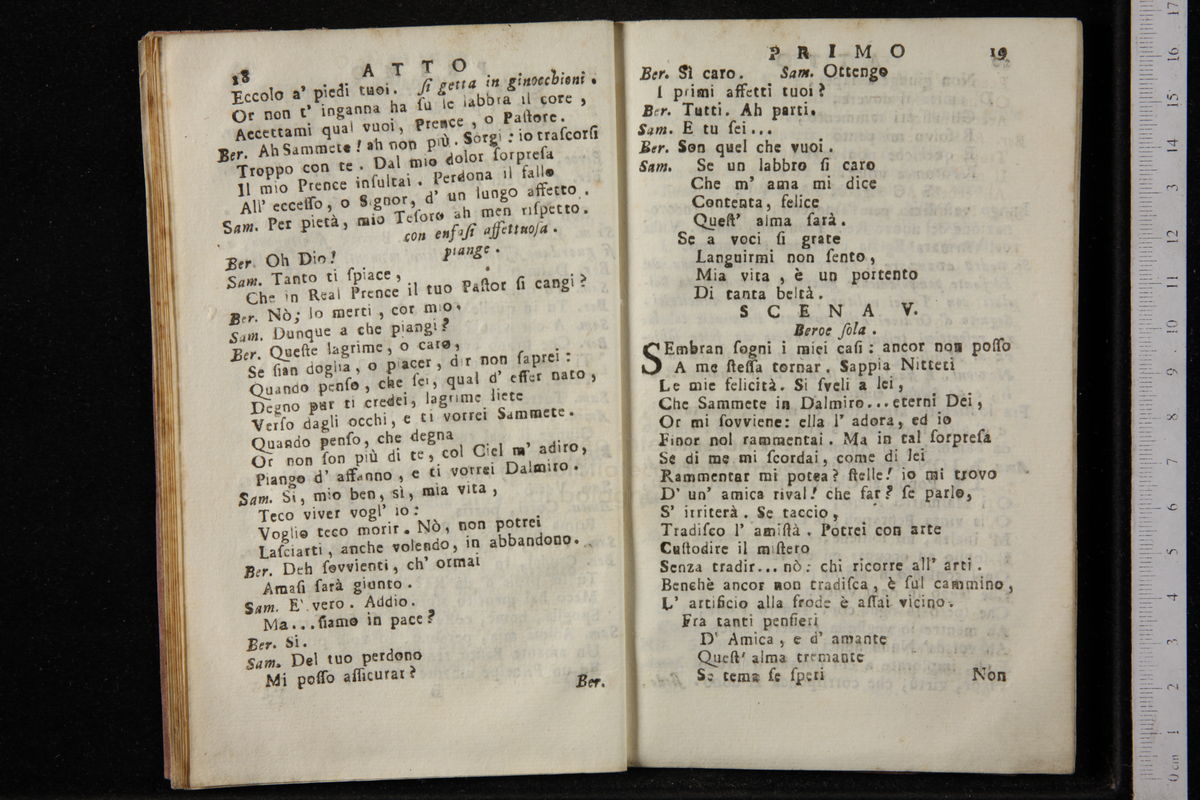 18 ATTO
Eccolo a' piedi tuoi. ſi getta in ginocchioni.
Or non t' inganna ha ſu le labbra il core,
Accettami qual vuoi, Prence, o Paſtore.
Ber. Ah Sammete! ah non più. Sorgi: io traſcorſi
Troppo con te. Dal mio dolor ſorpreſa
Il mio Prence inſultai. Perdona il fallo
All' ecceſſo, o Signor, d' un lungo affetto.
Sam. Per pietà, mio Teſoro ah men riſpetto.
con enfaſi affettuoſa.
Ber. Oh Dio! piange.
Sam. Tanto ti ſpiace,
Che in Real Prence il tuo Paſtor ſi cangi?
Ber. Nò; lo merti, cor mio.
Sam. Dunque a che piangi?
Ber. Queſte lagrime, o caro,
Se ſian doglia, o piacer, dir non ſaprei:
Quando penſo, che ſei, qual d' eſſer nato,
Degno pur ti credei, lagrime liete
Verſo dagli occhi, e ti vorrei Sammete.
Quando penſo, che degna
Or non ſon più di te, col Ciel m' adiro,
Piango d' affanno, e ti vorrei Dalmiro.
Sam. Sì, mio ben, sì, mia vita,
Teco viver vogl' io:
Voglio teco morir. Nò, non potrei
Laſciarti, anche volendo, in abbandono.
Ber. Deh ſovvienti, ch' ormai
Amaſi ſarà giunto.
Sam. E' vero. Addio.
Ma...ſiamo in pace?
Ber. Sì.
Sam. Del tuo perdono
Mi poſſo aſſicurar?
Ber.
PRIMO 19
Ber. Sì caro. Sam. Ottengo
I primi affetti tuoi?
Ber. Tutti. Ah parti.
Sam. E tu ſei...
Ber. Son quel che vuoi.
Sam. Se un labbro ſi caro
Che m' ama mi dice
Contenta, felice
Queſt' alma ſarà.
Se a voci ſi grate
Languirmi non ſento,
Mia vita, è un portento
Di tanta beltà.
SCENA V.
Beroe ſola.
SEmbran ſogni i miei caſi: ancor non poſſo
A me ſteſſa tornar. Sappia Nitteti
Le mie felicità. Si ſveli a lei,
Che Sammete in Dalmiro...eterni Dei,
Or mi ſovviene: ella l' adora, ed io
Finor nol rammentai. Ma in tal ſorpreſa
Se di me mi ſcordai, come di lei
Rammentar mi potea? ſtelle! io mi trovo
D' un' amica rival! che far? ſe parlo,
S' irriterà. Se taccio,
Tradiſco l' amiſtà. Potrei con arte
Cuſtodire il miſtero
Senza tradir... nò: chi ricorre all' arti.
Benchè ancor non tradiſca, è ſul cammino,
L' artificio alla frode è aſſai vicino.
Fra tanti penſieri
D' Amica, e d' amante
Queſt' alma tremante
Se tema ſe ſperi
Non